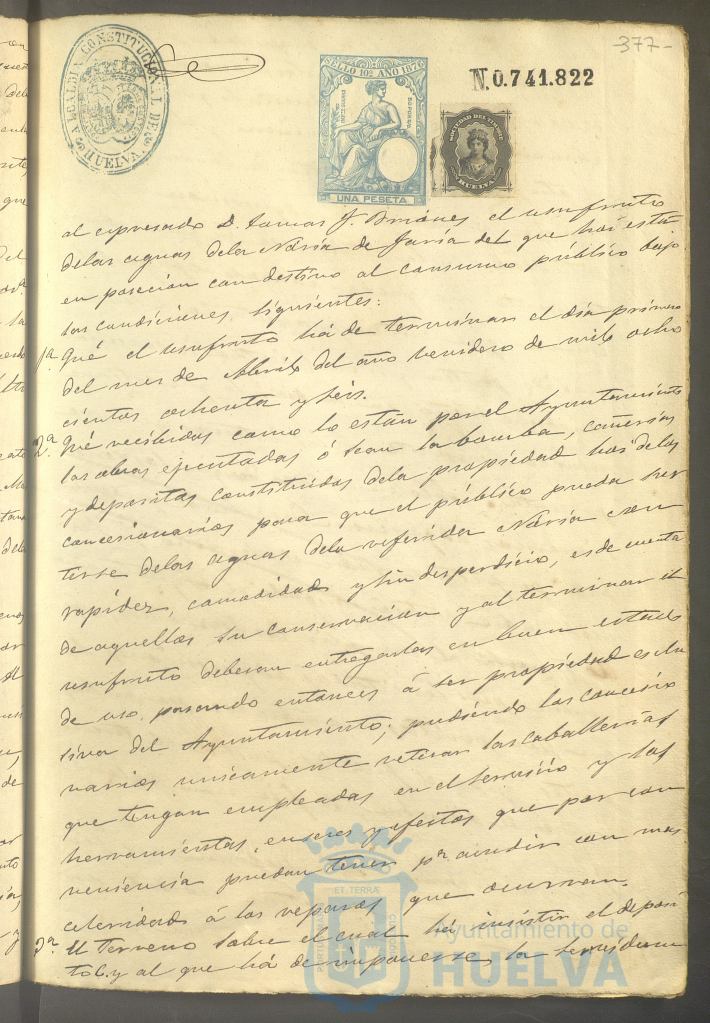 -377-
ALCALDIA CONSTITUCIONAL DE HUELVA
SELLO 10º AÑO 187
UNA PESETA
N.0.741.822
SOCIEDAD DEL TIMBRE
HUELVA
al espresado D. Tomas J. Briones el usufruto
delas aguas dela Noria de Jaria del que hoi está
en posecion con destino al consumo público bajo
las condiciones siguientes:
1ª. Qué el usufruto há de terminar el dia primero
del mes de Abril del año venidero de mil ocho
cientos ochenta y seis.
2ª. Qué recibidas como lo están por el Ayuntamiento
las obras ejecutadas ó sean la bomba, cañerias
y depositos constituidos dela propiedad hoi delos
concesionarios para que el público pueda sur
tirse delas aguas dela referida Noria con
rapidez, comodidad y sin desperdicio, es de cuenta
de aquellos su conservacion y al terminar el
usufruto deberan entregarlas en buen estado
de uso, pasando entonces á ser propiedad esclu
siva del Ayuntamiento; pudiendo los concesio
narios unicamente retirar las caballerias
que tengan empleadas en el servicio y las
herramientas, enseres y efectos que por con
veniencia puedan tener pª acudir con mas
celeridad á los reparos que ocurran.
3ª. El terreno sobre el cual há insistir el deposi
to &. y al que há de imponerse la servidum
Ayuntamiento de
HUELVA